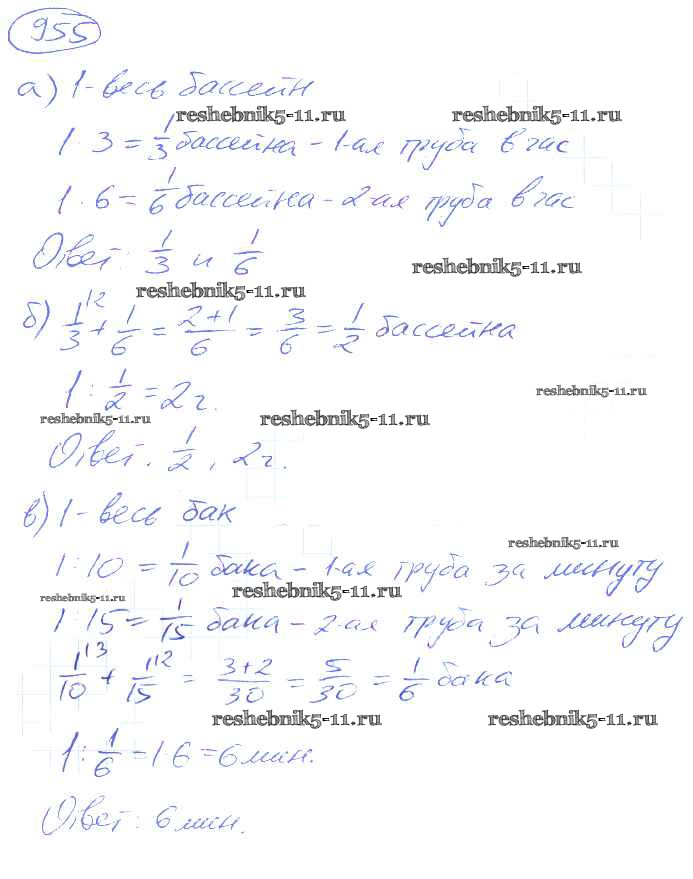 955
а) 1 - весь бассейн
reshebnik5-11.ru reshebnik5-11.ru
1 : 3 = 1/3 бассейна - 1-ая труба в час
1 : 6 = 1/6 бассейна - 2-ая труба в час
Ответ: 1/3 и 1/6
reshebnik5-11.ru
reshebnik5-11.ru
б) 1/3 + 1/6 = 2+1/6 = 3/6 = 1/2 бассейна
1 : 1/2 = 2 г.
reshebnik5-11.ru
reshebnik5-11.ru reshebnik5-11.ru
Ответ. 1/2, 2 г.
в) 1 - весь бак
reshebnik5-11.ru
1 : 10 = 1/10 бака - 1-ая труба за минуту
reshebnik5-11.ru reshebnik5-11.ru
1 : 15 = 1/15 бака - 2-ая труба за минуту
1/10 + 1/15 = 3+2/30 = 5/30 = 1/6 бака
reshebnik5-11.ru reshebnik5-11.ru
1 : 1/6 = 1 6 = 6 мин.
Ответ: 6 мин.